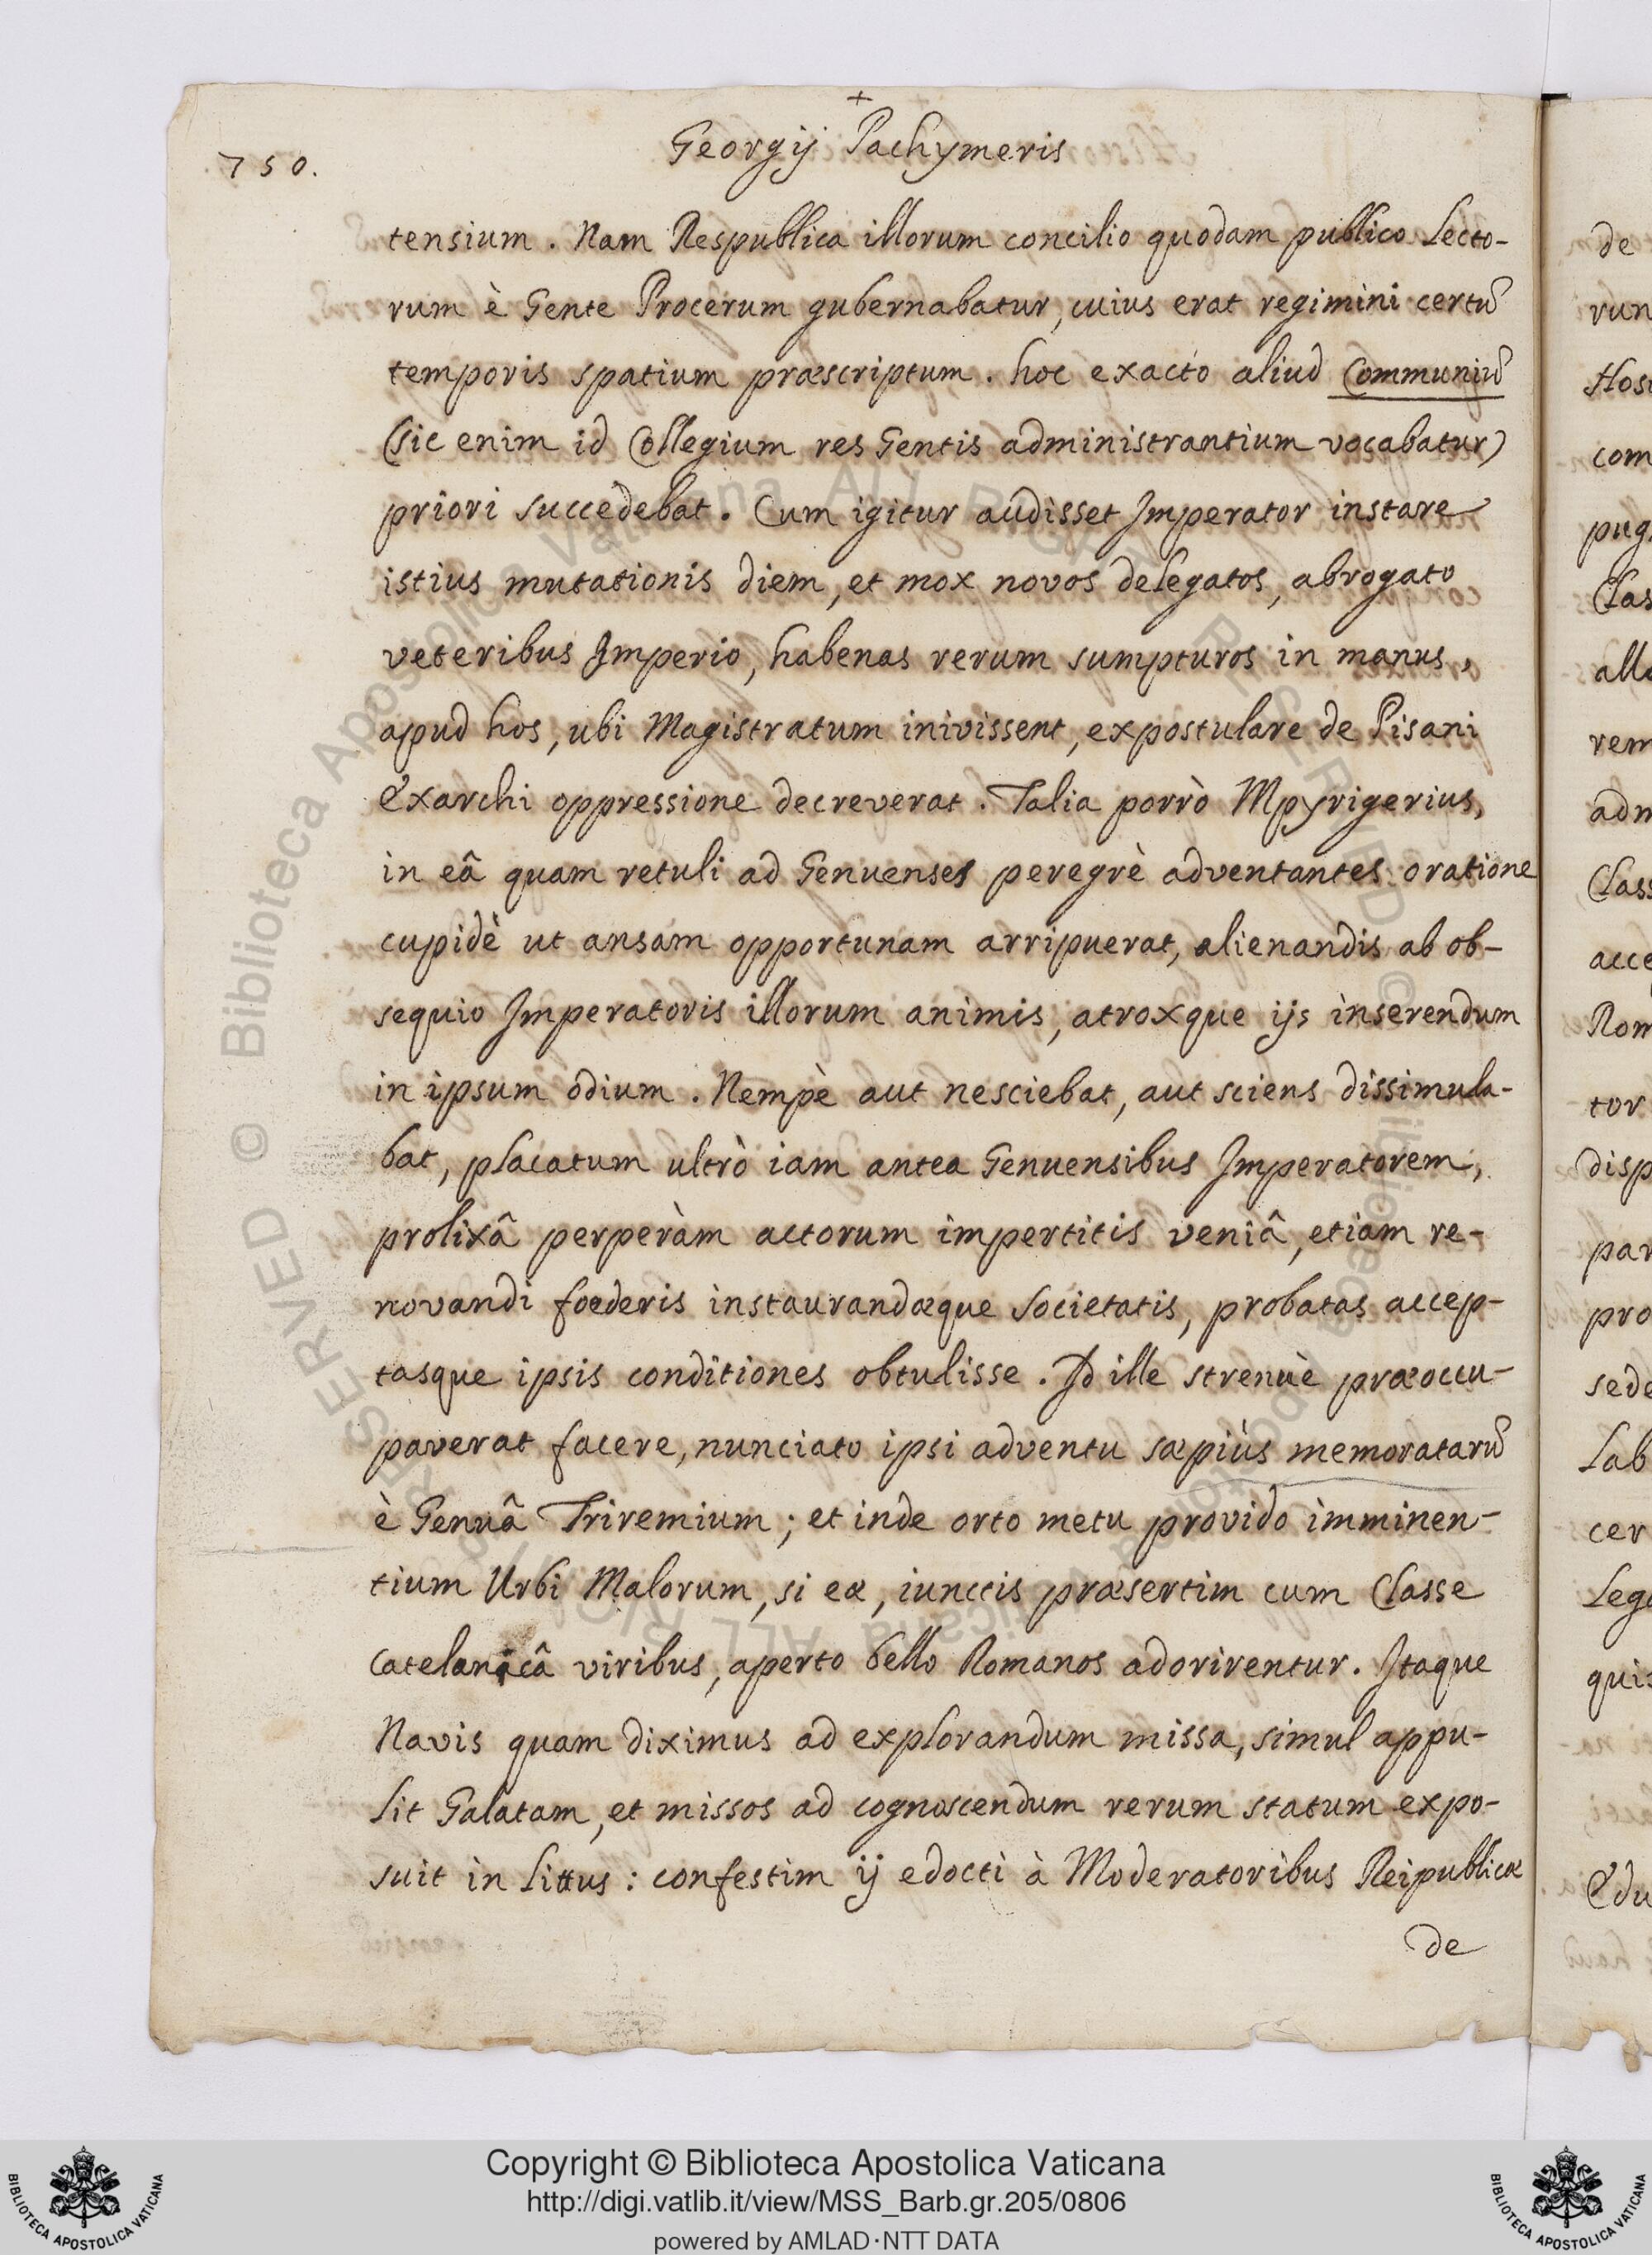 +
750.
Georgij Pachymeris
tensium. Nam Respublica illorum concilio quodam publico Lecto-
rum è Gente Procerum gubernabatur, cuius erat regimini certũ
temporis spatium præscriptum. hoc exacto aliud Communiũ
(sic enim id Collegium res Gentis administrantium vocabatur)
priori succedebat. Cum igitur audisset Imperator instare
istius mutationis diem, et mox novos delegatos, abrogato
veteribus Imperio, habenas rerum sumpturos in manus,
apud hos, ubi Magistratum inivissent, expostulare de Pisani
Exarchi oppressione decreverat. Talia porrò Mpyrigerius,
in eâ quam retuli ad Genuenses peregrè adventantes oratione
cupidè ut ansam opportunam arripuerat, alienandis ab ob-
sequio Imperatoris illorum animis, atroxque ijs inserendum
in ipsum odium. Nempè aut nesciebat, aut sciens dissimula-
bat, placatum ultrò iam antea Genuensibus Imperatorem,
prolixâ perperàm actorum impertitis veniâ, etiam re-
novandi foederis instaurandæque societatis, probatas accep-
tasque ipsis conditiones obtulisse. Id ille strenuè præoccu-
paverat facere, nunciato ipsi adventu sæpiùs memoratarũ
è Genuâ Triremium; et inde orto metu provido imminen-
tium Urbi Malorum, si eæ, iunctis præsertim cum Classe
Catelanicâ viribus, aperto bello Romanos adorirentur. Itaque
Navis quam diximus ad explorandum missa, simul appu-
lit Galatam, et missos ad cognoscendum rerum statum expo-
suit in Littus: confestim ij edocti à Moderatoribus Reipublicæ
de
de
run
com
pug
Clas
rem
adm
Class
acce
Rom
tor
disp
par
pro
sede
Lab
cer
Lege
quis
Edu
© Biblioteca Apostolica Vaticana ALL RIGHTS RESERVED
Copyright © Biblioteca Apostolica Vaticana
http://digi.vatlib.it/view/MSS_Barb.gr.205/0806
powered by AMLAD·NTT DATA
BIBLIOTECA APOSTOLICA VATICANA
BIBLIOTECA APOSTOLICA VATICANA